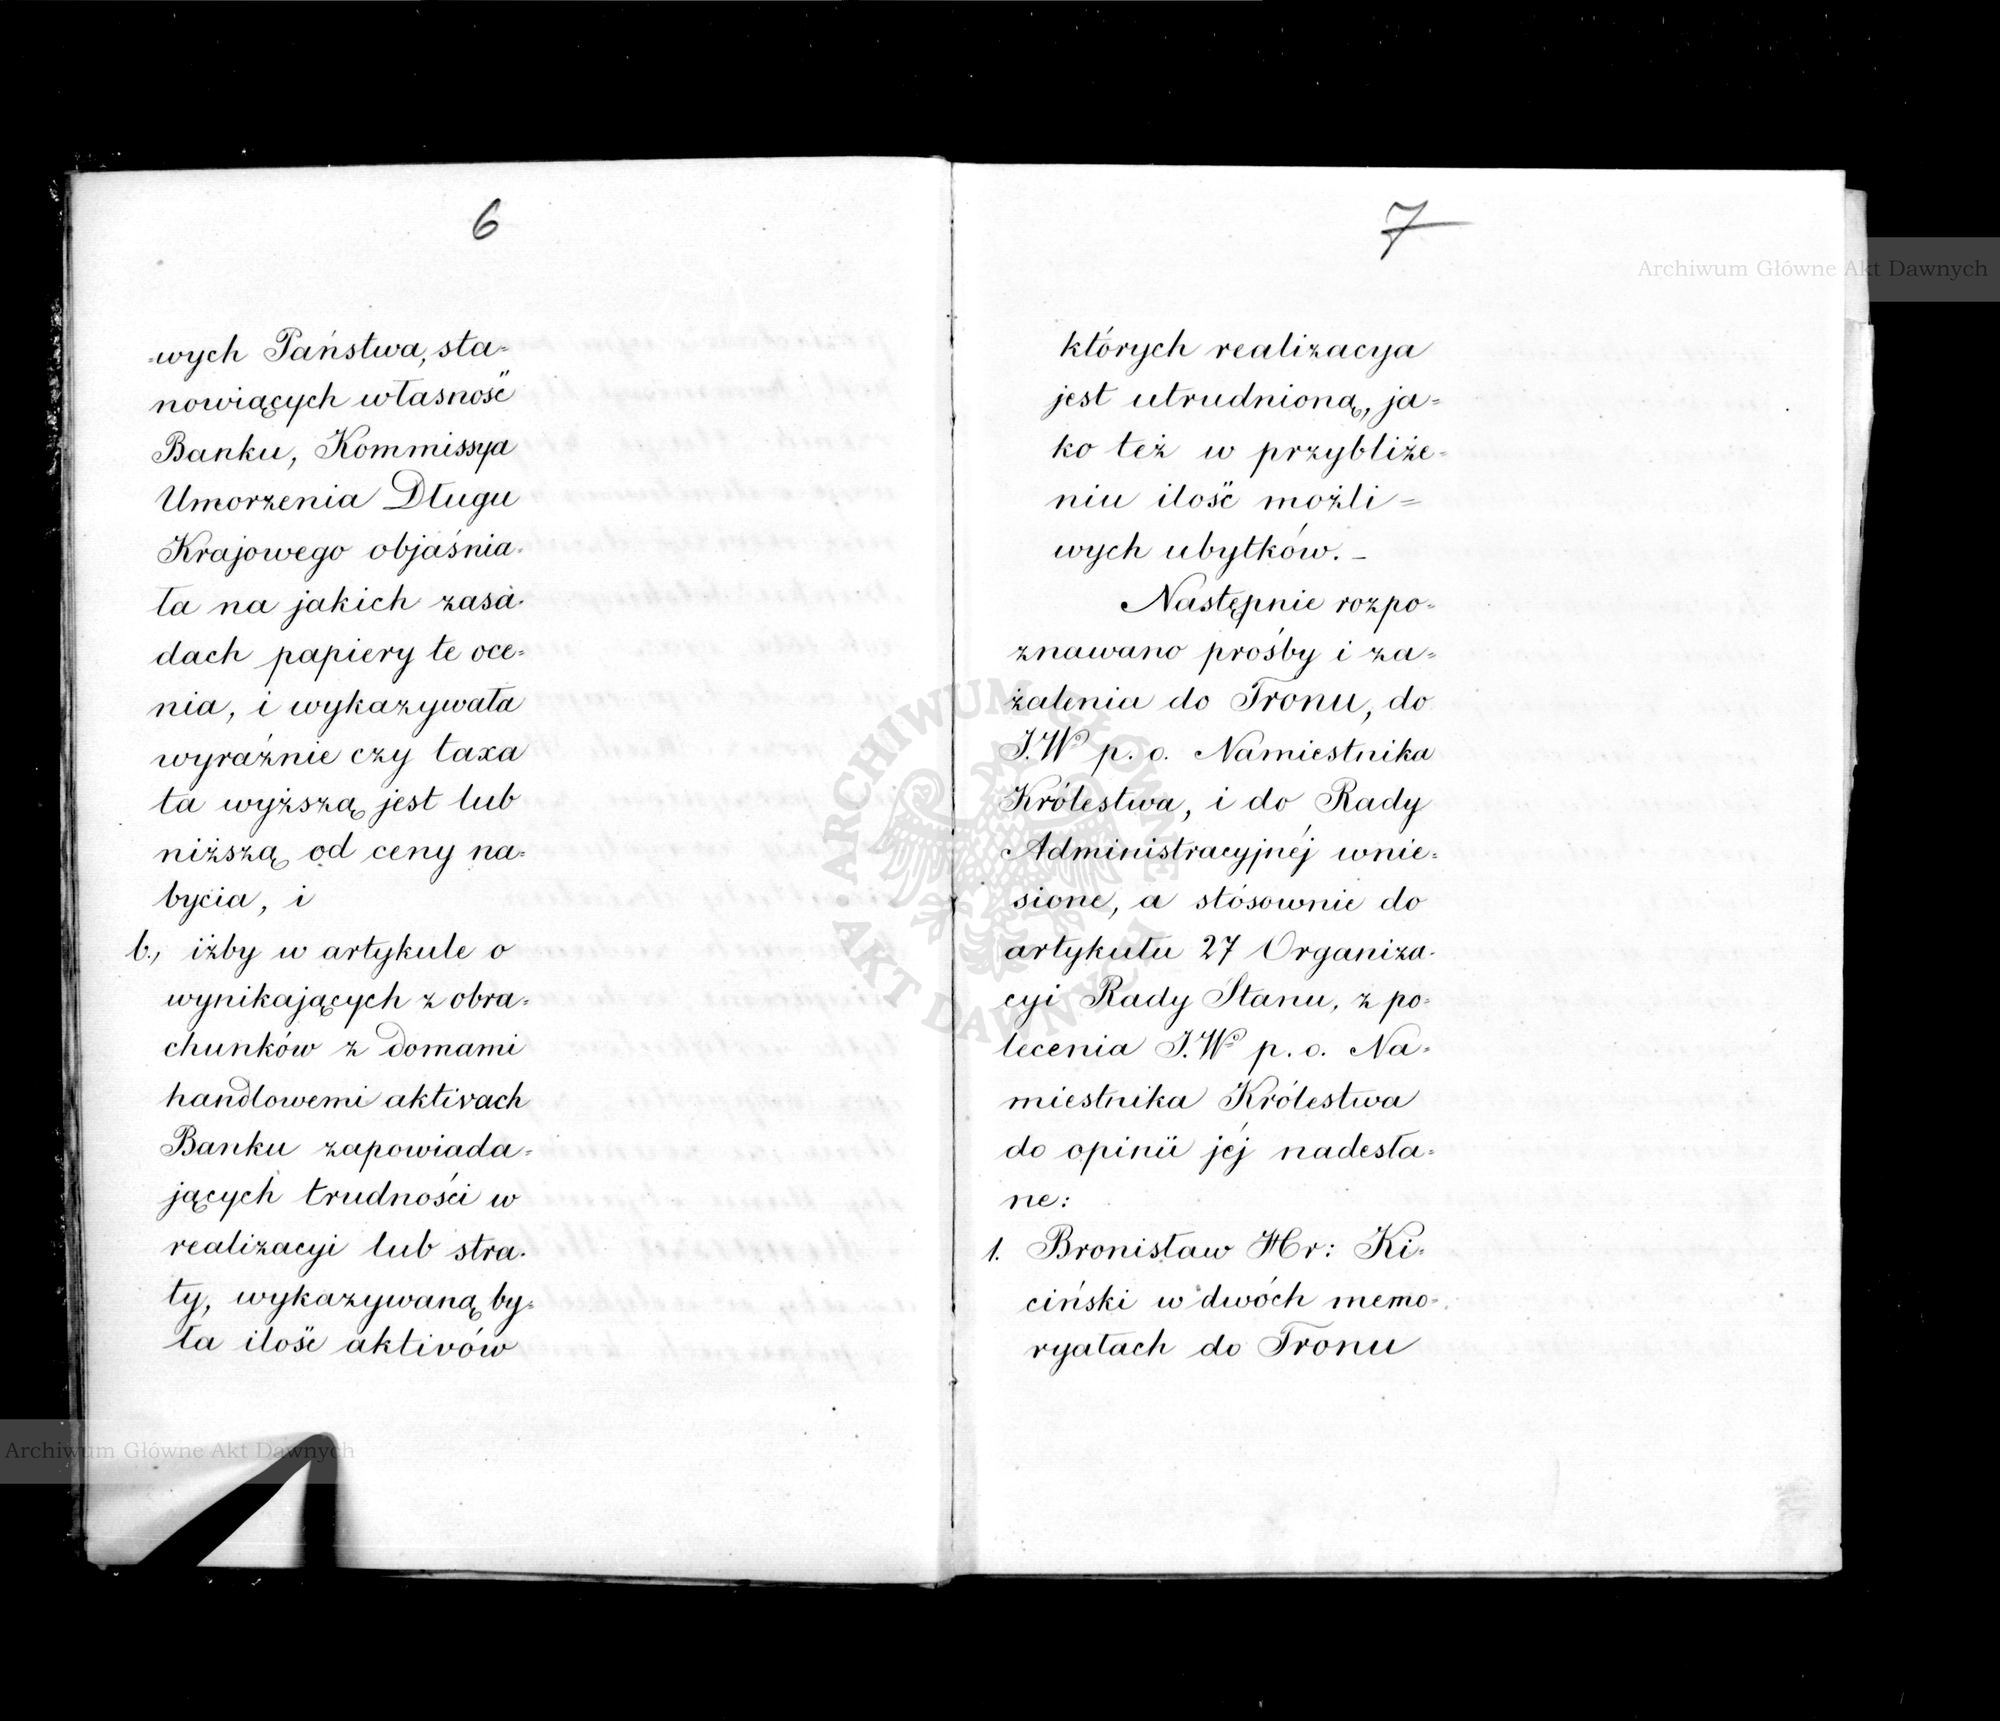 6
-wych Państwa, sta-
nowiących własność
Banku, Kommissya
Umorzenia Długu
Krajowego objaśnia-
ła na jakich zasa-
dach papiery te oce-
nia, i wykazywała
wyraźnie czy taxa
ta wyższą jest lub
niższą od ceny na-
bycia, i
b., iżby w artykule o
wynikających z obra-
chunków z domami
handlowemi aktivach
Banku zapowiada-
jących trudności w
realizacyi lub stra-
ty, wykazywaną by-
ła ilość aktivów
7
których realizacya
jest utrudnioną, ja-
ko też w przybliże-
niu ilość możli-
wych ubytków. –
Następnie rozpo-
znawano prośby i za-
żalenia do Tronu, do
J.Wo p. o. Namiestnika
Królestwa, i do Rady
Administracyjnéj wnie-
sione, a stósownie do
artykułu 27 Organiza-
cyi Rady Stanu, z po-
lecenia J.Wo p. o. Na-
miestnika Królestwa
do opinii jéj nadesła-
ne:
1. Bronisław Hr: Ki-
ciński w dwóch memo-
ryałach do Tronu
Archiwum Główne Akt Dawnych
Archiwum Główne Akt Dawnych
ARCHIWUM GŁÓWNE · AKT DAWNYCH ·